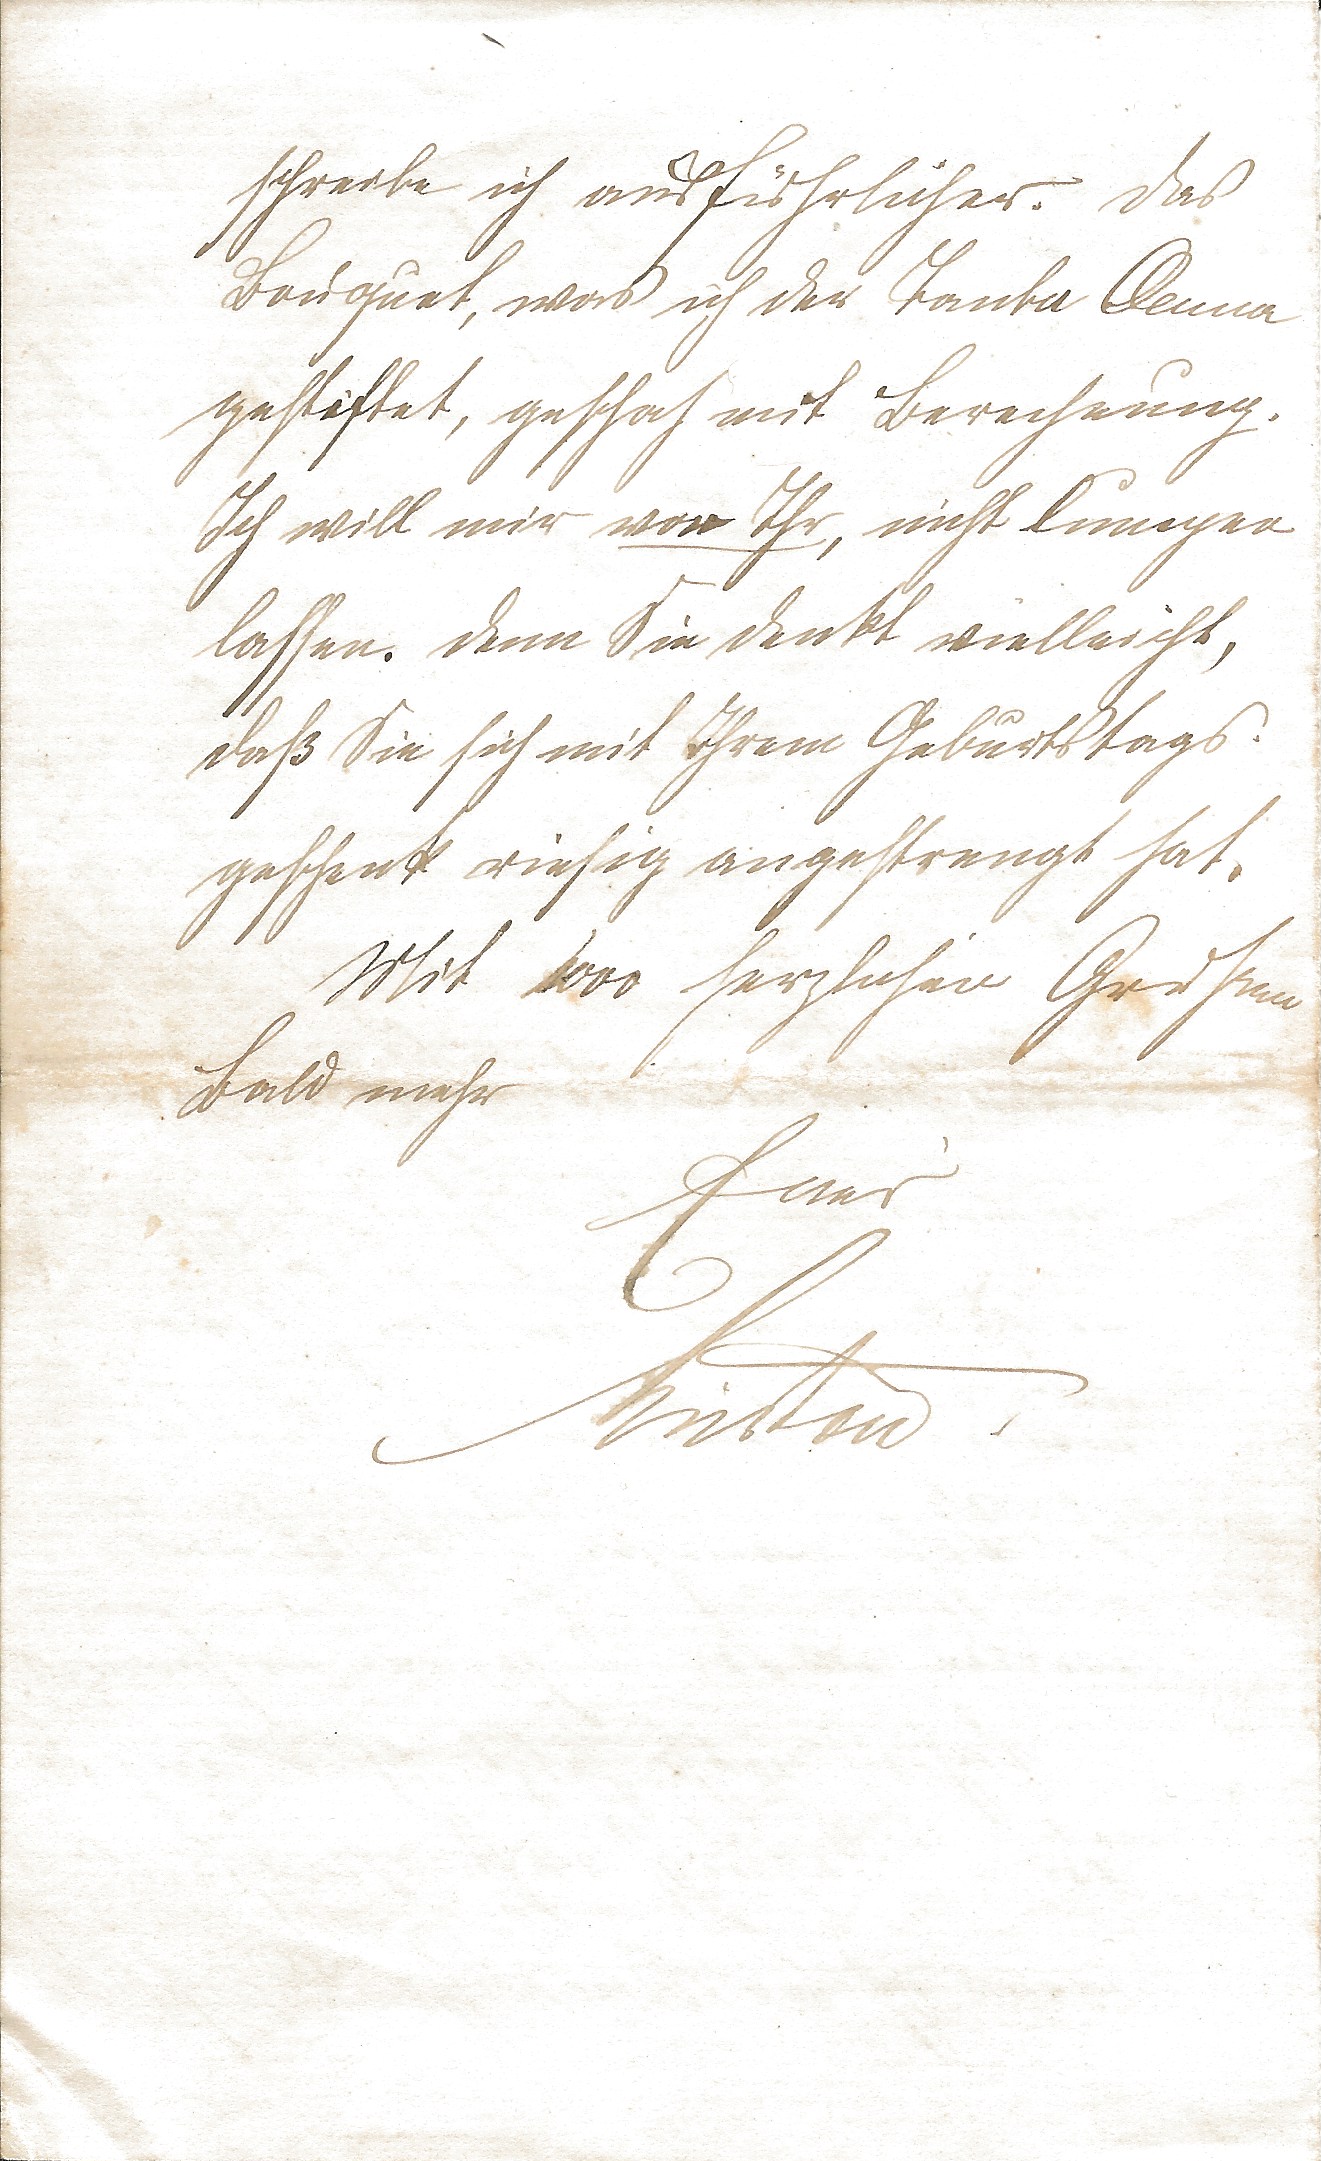 schreibe ich ausführlicher. Das
Bouquet, was ich der Tante Anna
gestiftet, geschah mit Berechnung.
Ich will mir von Ihr, nicht lumpen
lassen. denn Sie denkt vielleicht,
daß Sie sich mit Ihrem Geburtstags-
geschenk riesig angestrengt hat.
Mit 1000 herzlichen Grüßen
bald mehr
Euer